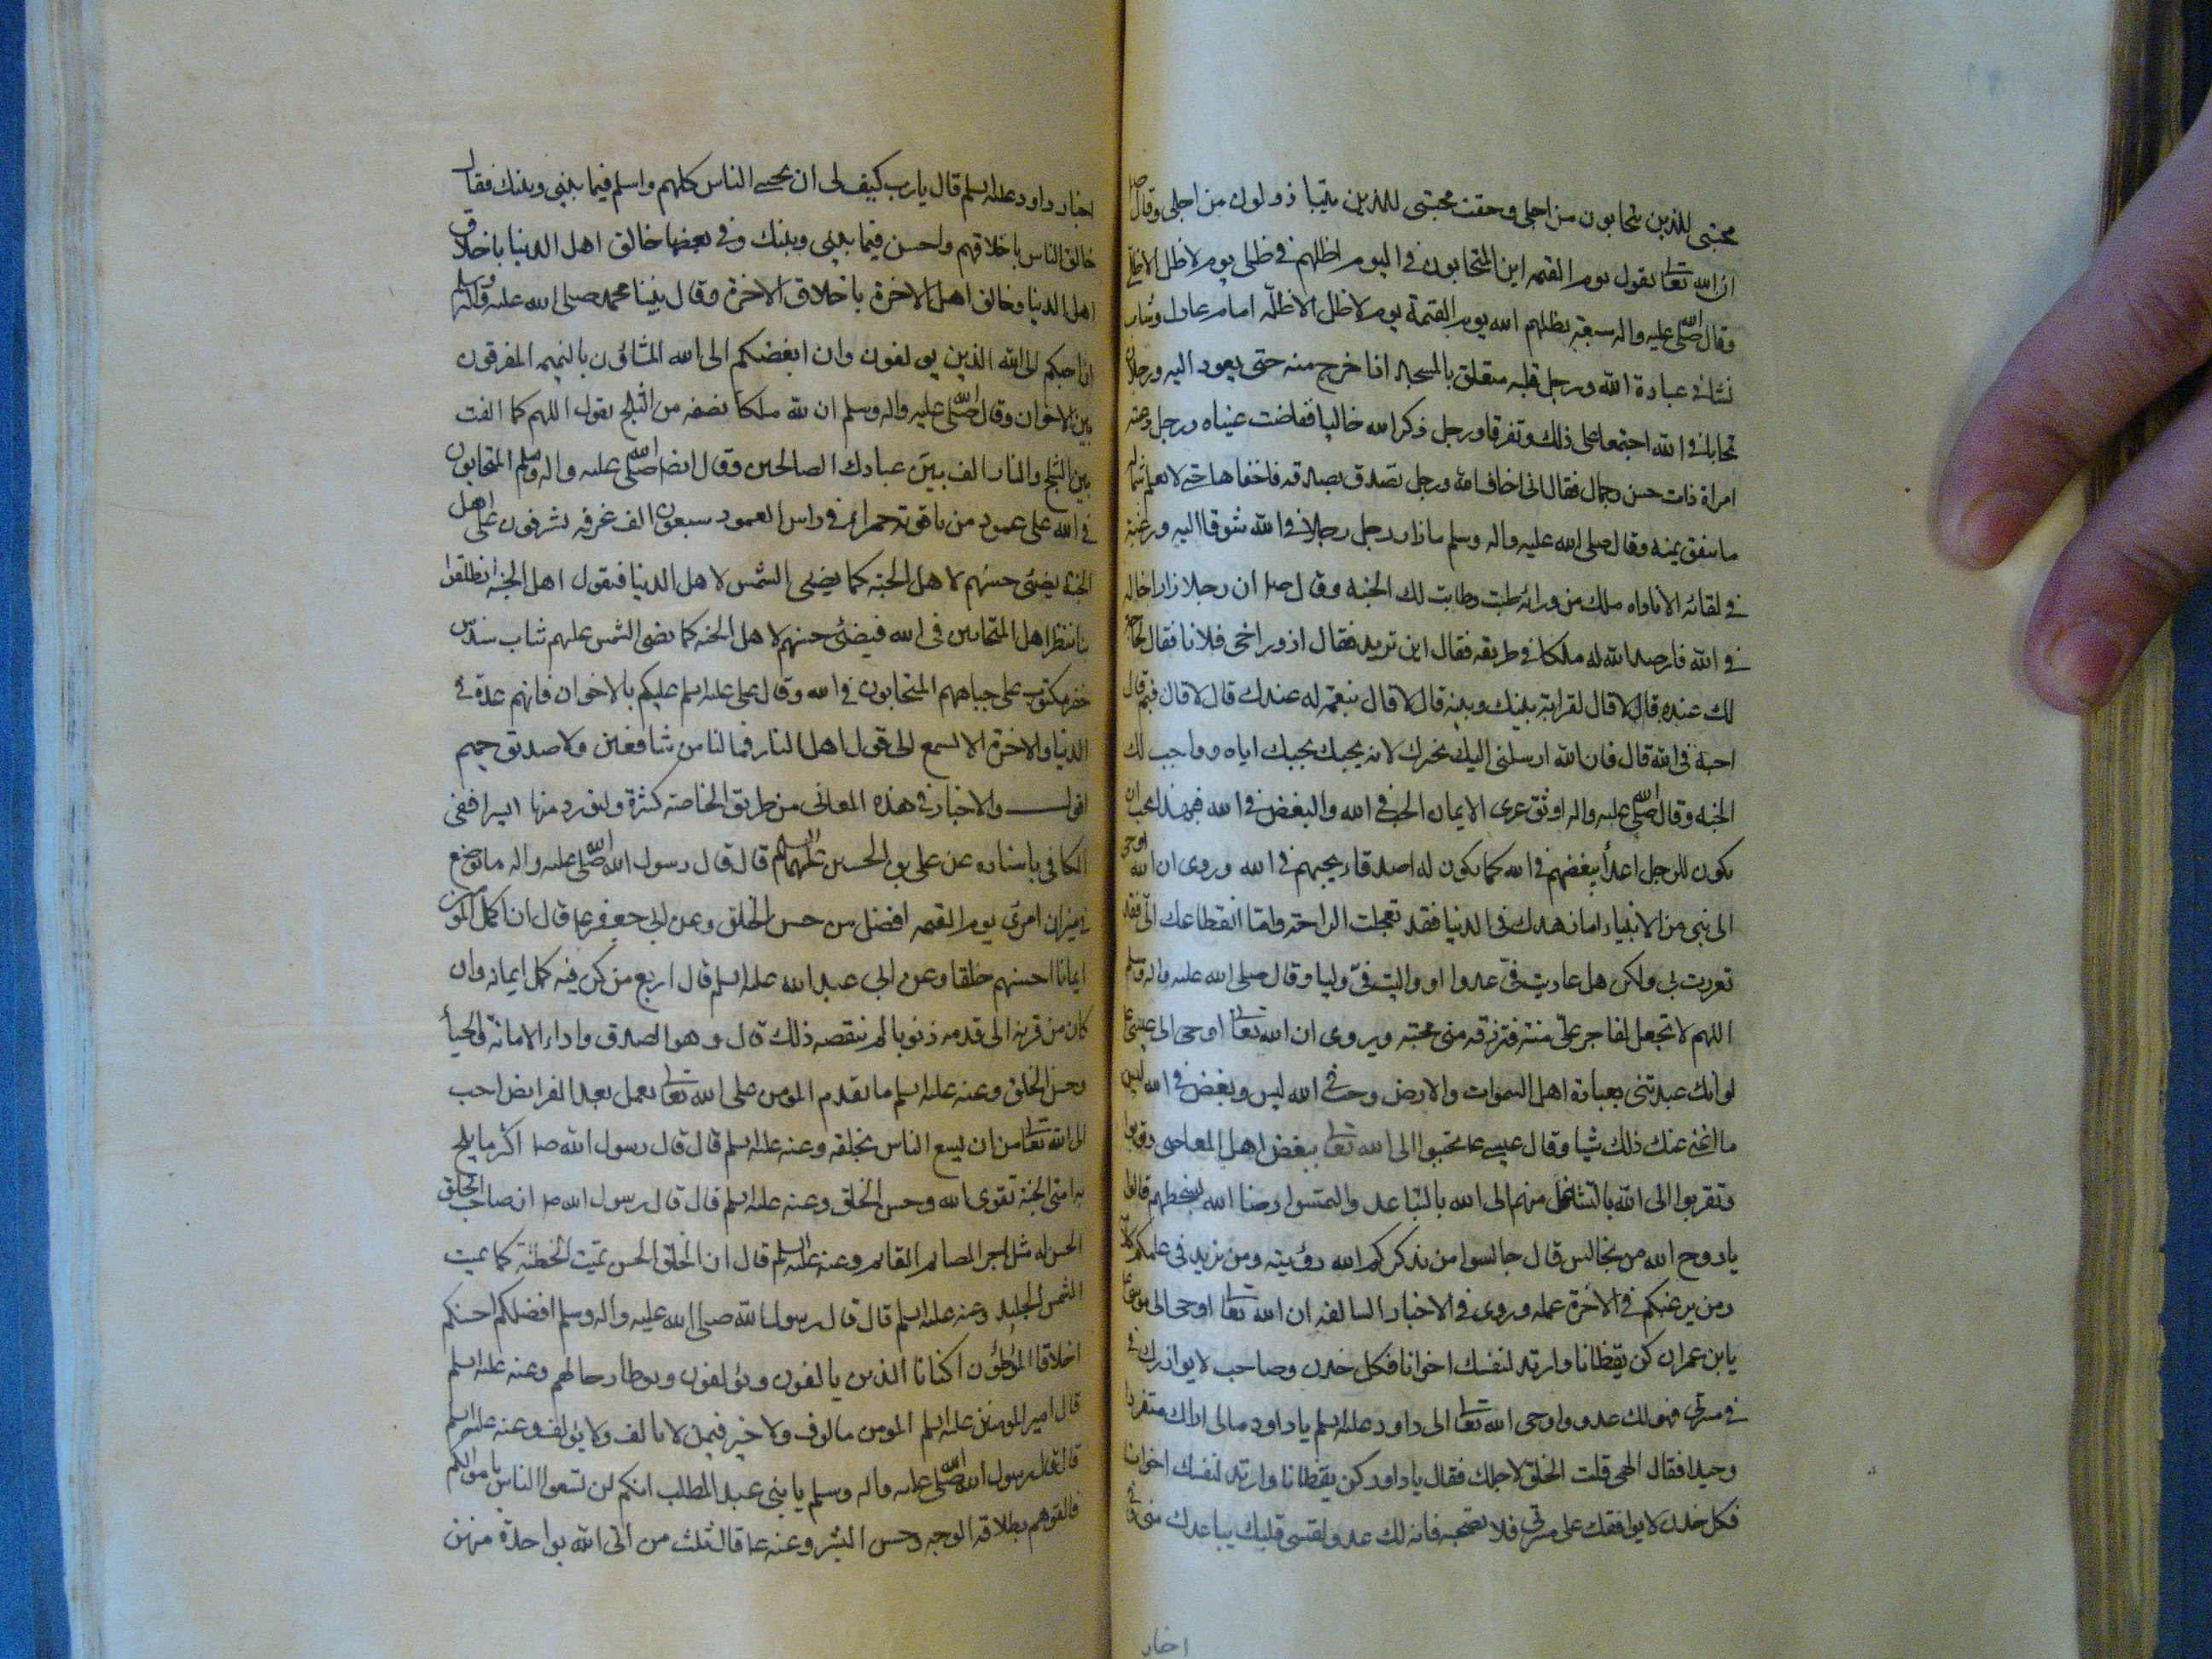 محبتى للذين يتحابون من اجلى وحقت محبتى للذين يتباذلون من اجلى وقال ص
ان الله تعا يقول يوم القيمه اين المتحابون فى اليوم اظلهم فى ظلى يوم لا ظل الا ظلى
وقال صلى الله عليه واله سبعة يظلهم الله يوم القيمة يوم لا ظل الا ظله امام عادل وشاب
نشأ فى عبادة الله ورجل قلبه متعلق بالمسجد اذا خرج منه حتى يعود اليه ورجلان
تحابا فى الله اجتمعا على ذلك وتفرقا ورجل ذكر الله خاليا ففاضت عيناه ورجل دعته
امراة ذات حسن وجمال فقال انى اخاف الله ورجل تصدق بصدقه فاخفاها حتى لا تعلم شماله
ما تنفق يمينه وقال صلى الله عليه واله وسلم ما زار رجل رجلا فى الله شوقا اليه ورغبة
فى لقائه الا ناداه ملك من ورائه طبت وطابت لك الجنه وقال ص ان رجلا زار اخا له
فى الله فارصد الله له ملكا فى طريقه فقال اين تريد فقال ازور اخى فلانا فقال لحاجة
لك عنده قال لا قال لقرابة بينك وبينه قال لا قال فبنعمة له عندك قال لا قال فبم قال
احبه فى الله قال فان الله ارسلنى اليك يخبرك لانه يحبك بحبك اياه وواجب لك
الجنه وقال صلى الله عليه واله اوثق عرى الايمان الحب فى الله والبغض فى الله فبهذا يجب ان
يكون للرجل اعدأ يبغضهم فى الله كما يكون له اصدقاء يحبهم فى الله وروى ان الله اوحى
الى نبى من الانبياء اما زهدك فى الدنيا فقد تعجلت الراحة واما انقطاعك الىّ فقد
تعززت بى ولكن هل عاديت فىّ عدوا او واليت فىّ وليا وقال صلى الله عليه واله وسلم
اللهم لا تجعل لفاجر علىّ منة فترزقه منى محبته ويروى ان الله تعا اوحى الى عيسى ع
لو انك عبدتنى بعبادة اهل السموات والارض وحب فى الله ليس وبغض فى الله ليس
ما اغنى عنك ذلك شيا وقال عيسى ع تحببوا الى الله تعا ببغض اهل المعاصى
وتقربوا الى الله بالتباعد منهم والتمسوا رضا الله بسخطهم قالوا
يا روح الله من نجالس قال جالسوا من يذكركم الله رؤيته ومن يزيد فى علمكم كلامه
ومن يرغبكم فى الاخرة عمله وروى فى الاخبار السالفه ان الله تعا اوحى الى موسى ع
يا بن عمران كن يقظانا وارتد لنفسك اخوانا فكل خدن وصاحب لا يوازرك
فى مسرتى فهو لك عدو واوحى الله تعا الى داود عليه السلم يا داود مالى اراك منتبذا
وحيدا فقال الهى قليت الخلق لاجلك فقال يا داود كن يقظانا وارتد لنفسك اخوانا
فكل خدن لا يوافقك على مسرتى فلا تصحبه فانه لك عدو ويقسى قلبك ويباعدك منى وفى
اخبار
اخبار داود عليه السلم قال يا رب كيف لى ان يحبنى الناس كلهم واسلم فيما بينى وبينك فقال
خالق الناس باخلاقهم واحسن فيما بينى وبينك وفى بعضها خالق اهل الدنيا باخلاق
اهل الدنيا وخالق اهل الاخرة باخلاق الاخرة وقال نبينا محمد صلى الله عليه واله وسلم
ان احبكم الى الله الذين يولفون وان ابغضكم الى الله المشاؤن بالنميمه المفرقون
بين الاخوان وقال صلى الله عليه واله وسلم ان لله ملكا نصفه من الثلج يقول اللهم كما الفت
بين الثلج والنار الف بين عبادك الصالحين وقال ايضا صلى الله عليه واله وسلم المتحابون
فى الله على عمود من ياقوتة حمراء فى راس العمود سبعون الف غرفه يشرفون على اهل
الجنة يضئ حسنهم لاهل الجنه كما يضئ الشمس لاهل الدنيا فيقول اهل الجنه انطلقوا
بنا ننظر اهل المتحابين فى الله فيضئ حسنهم لاهل الجنه كما تضئ الشمس عليهم ثياب سندس
خضر مكتوب على جباههم المتحابون فى الله وقال على عليه السلم عليكم بالاخوان فانهم عدة فى
الدنيا والاخرة الا تسمع الى قول اهل النار فما لنا من شافعين ولا صديق حميم
اقول والاخبار فى هذه المعانى من طريق الخاصة كثيرة ولنورد منها يسيرا ففى
الكافى باسناده عن على بن الحسين عليهما السلام قال قال رسول الله صلى الله عليه واله ما يوضع
فى ميزان امرئ يوم القيمه افضل من حسن الخلق وعن ابى جعفر ع قال ان اكمل المومنين
ايمانا احسنهم خلقا وعن ابى عبد الله عليه السلم قال اربع من كن فيه كمل ايمانه وان
كان من قرنه الى قدمه ذنوبا لم ينقصه ذلك قال وهو الصدق واداء الامانة والحيأ
وحسن الخلق وعنه عليه السلم ما يقدم المومن على الله تعا بعمل بعد الفرايض احب
الى الله تعا من ان يسع الناس بخلقه وعنه عليه السلم قال قال رسول الله ص اكثر ما يلج
به امتى الجنة تقوى الله وحسن الخلق وعنه عليه السلم قال قال رسول الله ص ان صاحب الخلق
الحسن له مثل اجر الصائم القائم وعنه عليه السلم قال ان الخلق الحسن يميت الخطيئة كما يميت
الشمس الجليد وعنه عليه السلم قال قال رسول الله صلى الله عليه واله وسلم افضلكم احسنكم
اخلاقا الموطؤن اكنافا الذين يالفون ويؤلفون وتوطأ رحالهم وعنه عليه السلم
قال امير المومنين عليه السلم المومن مالوف ولا خير فيمن لا يالف ولا يؤلف وعنه عليه السلم
قال قال رسول الله صلى الله عليه واله وسلم يا بنى عبد المطلب انكم لن تسعوا الناس باموالكم
فالقوهم بطلاقه الوجه وحسن البشر وعنه ع قال ثلث من اتى الله بواحدة منهن